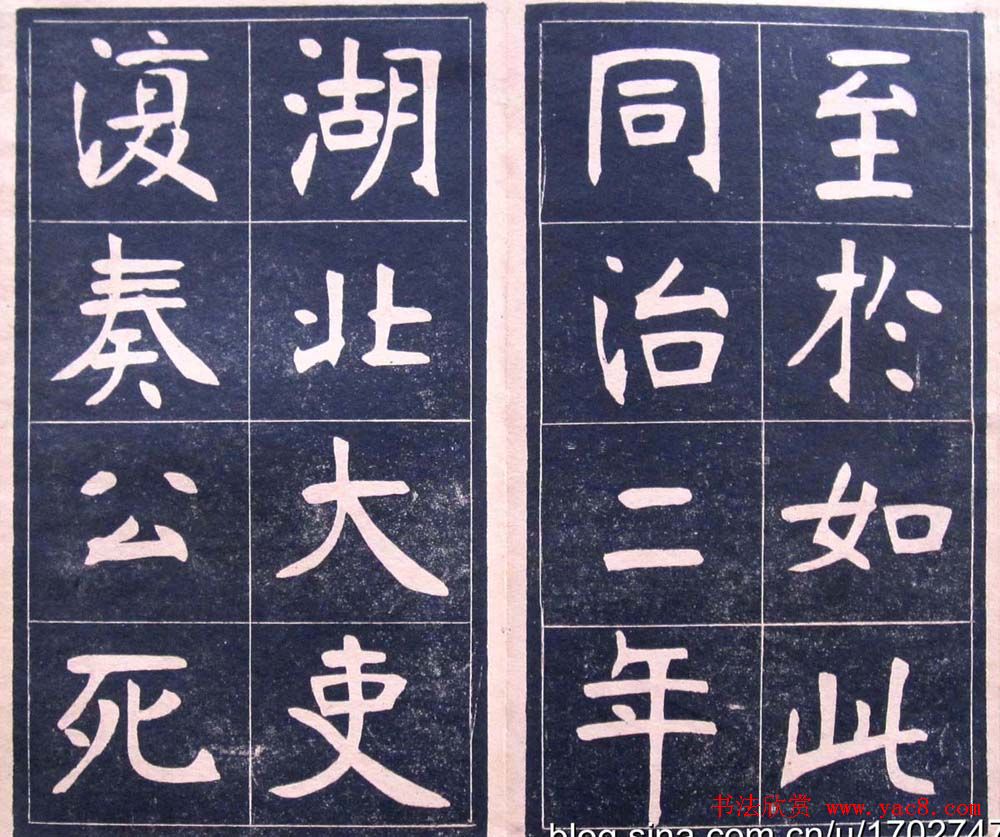 至於如此
同治二年
湖北大吏
復奏公死
书法欣赏 www.yac8.com
blog.sina.com.cn/u/1702745